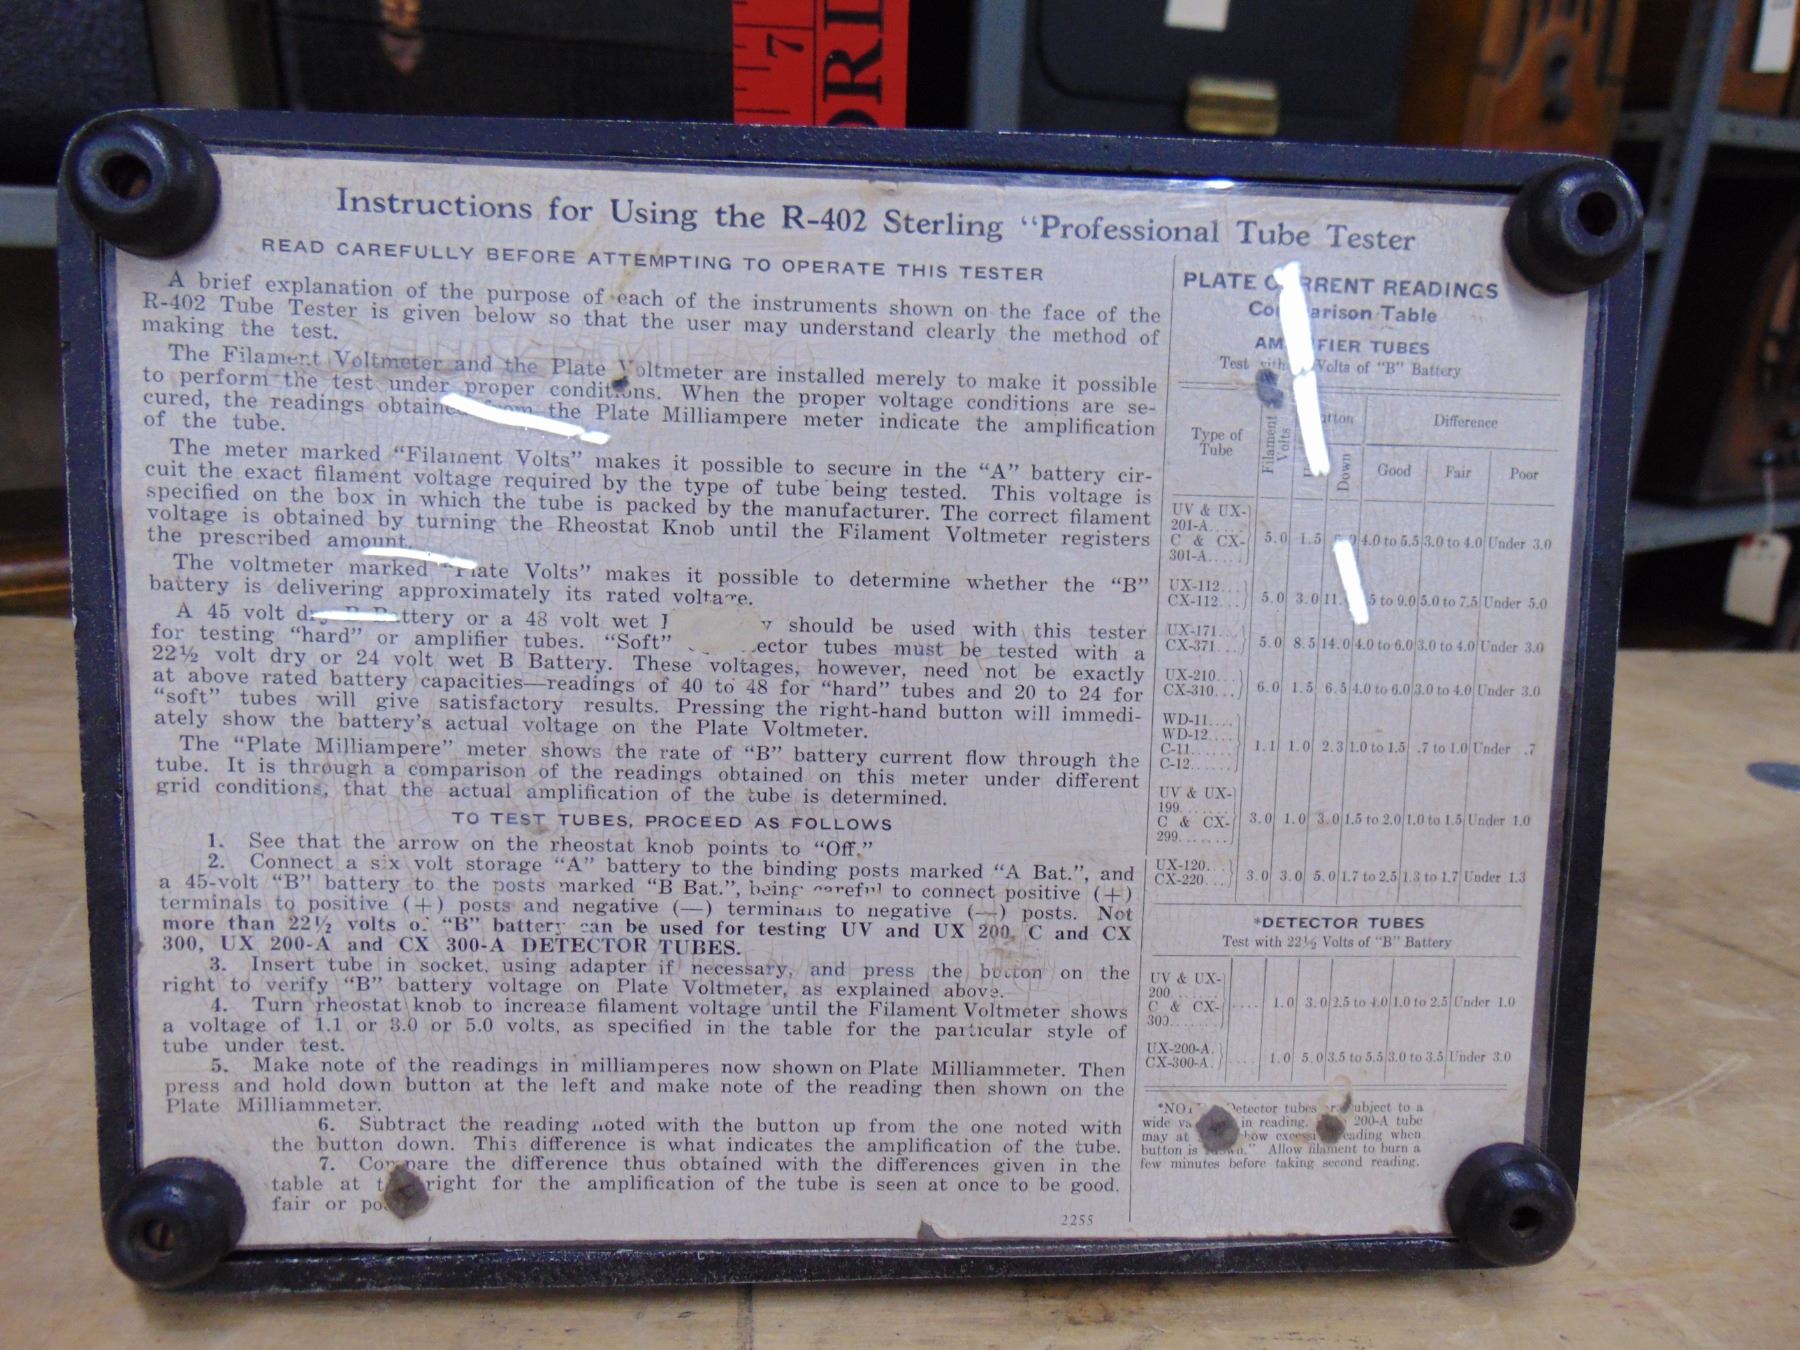 7
ORI
Instructions for Using the R-402 Sterling "Professional Tube Tester
READ CAREFULLY BEFORE ATTEMPTING TO OPERATE THIS TESTER
A brief explanation of the purpose of each of the instruments shown on the face of the
R-402 Tube Tester is given below so that the user may understand clearly the method of
making the test.
The Filament Voltmeter and the Plate Voltmeter are installed merely to make it possible
to perform the test under proper conditions. When the proper voltage conditions are se-
cured, the readings obtained from the Plate Milliampere meter indicate the amplification
of the tube.
The meter marked "Filament Volts" makes it possible to secure in the "A" battery cir-
cuit the exact filament voltage required by the type of tube being tested. This voltage is
specified on the box in which the tube is packed by the manufacturer. The correct filament
voltage is obtained by turning the Rheostat Knob until the Filament Voltmeter registers
the prescribed amount.
The voltmeter marked "Plate Volts" makes it possible to determine whether the "B"
battery is delivering approximately its rated voltage.
A 45 volt dry B Battery or a 48 volt wet should be used with this tester
for testing "hard" or amplifier tubes. "Soft" ector tubes must be tested with a
22½ volt dry or 24 volt wet B Battery. These voltages, however, need not be exactly
at above rated battery capacities—readings of 40 to 48 for "hard" tubes and 20 to 24 for
"soft" tubes will give satisfactory results. Pressing the right-hand button will immedi-
ately show the battery's actual voltage on the Plate Voltmeter.
The "Plate Milliampere" meter shows the rate of "B" battery current flow through the
tube. It is through a comparison of the readings obtained on this meter under different
grid conditions, that the actual amplification of the tube is determined.
TO TEST TUBES, PROCEED AS FOLLOWS
1. See that the arrow on the rheostat knob points to "Off."
2. Connect a six volt storage "A" battery to the binding posts marked "A Bat.", and
a 45-volt "B" battery to the posts marked "B Bat.", being careful to connect positive (+)
terminals to positive (+) posts and negative (—) terminals to negative (—) posts. Not
more than 22½ volts of "B" battery can be used for testing UV and UX 200, C and CX
300, UX 200-A and CX 300-A DETECTOR TUBES.
3. Insert tube in socket, using adapter if necessary, and press the button on the
right to verify "B" battery voltage on Plate Voltmeter, as explained above.
4. Turn rheostat knob to increase filament voltage until the Filament Voltmeter shows
a voltage of 1.1 or 3.0 or 5.0 volts, as specified in the table for the particular style of
tube under test.
5. Make note of the readings in milliamperes now shown on Plate Milliammeter. Then
press and hold down button at the left and make note of the reading then shown on the
Plate Milliammeter.
6. Subtract the reading noted with the button up from the one noted with
the button down. This difference is what indicates the amplification of the tube.
7. Compare the difference thus obtained with the differences given in the
table at the right for the amplification of the tube is seen at once to be good,
fair or po
2255
PLATE CURRENT READINGS
Comparison Table
AMPLIFIER TUBES
Test with Volts of "B" Battery
Type of Tube Filament Volts Down Difference
Good Fair Poor
UV & UX-
201-A....
C & CX-
301-A.... 5.0 1.5 4.0 to 5.5 3.0 to 4.0 Under 3.0
UX-112...
CX-112... 5.0 3.0 11. 5 to 9.0 5.0 to 7.5 Under 5.0
UX-171...
CX-371... 5.0 8.5 14.0 4.0 to 6.0 3.0 to 4.0 Under 3.0
UX-210...
CX-310... 6.0 1.5 6.5 4.0 to 6.0 3.0 to 4.0 Under 3.0
WD-11....
WD-12....
C-11......
C-12...... 1.1 1.0 2.3 1.0 to 1.5 .7 to 1.0 Under .7
UV & UX-
199......
C & CX-
299...... 3.0 1.0 3.0 1.5 to 2.0 1.0 to 1.5 Under 1.0
UX-120...
CX-220... 3.0 3.0 5.0 1.7 to 2.5 1.3 to 1.7 Under 1.3
*DETECTOR TUBES
Test with 22½ Volts of "B" Battery
UV & UX-
200......
C & CX-
300...... .... 1.0 3.0 2.5 to 4.0 1.0 to 2.5 Under 1.0
UX-200-A.
CX-300-A. .... 1.0 5.0 3.5 to 5.5 3.0 to 3.5 Under 3.0
*NOT Detector tubes are subject to a
wide va in reading. 200-A tube
may at show excessive reading when
button is "down." Allow filament to burn a
few minutes before taking second reading.